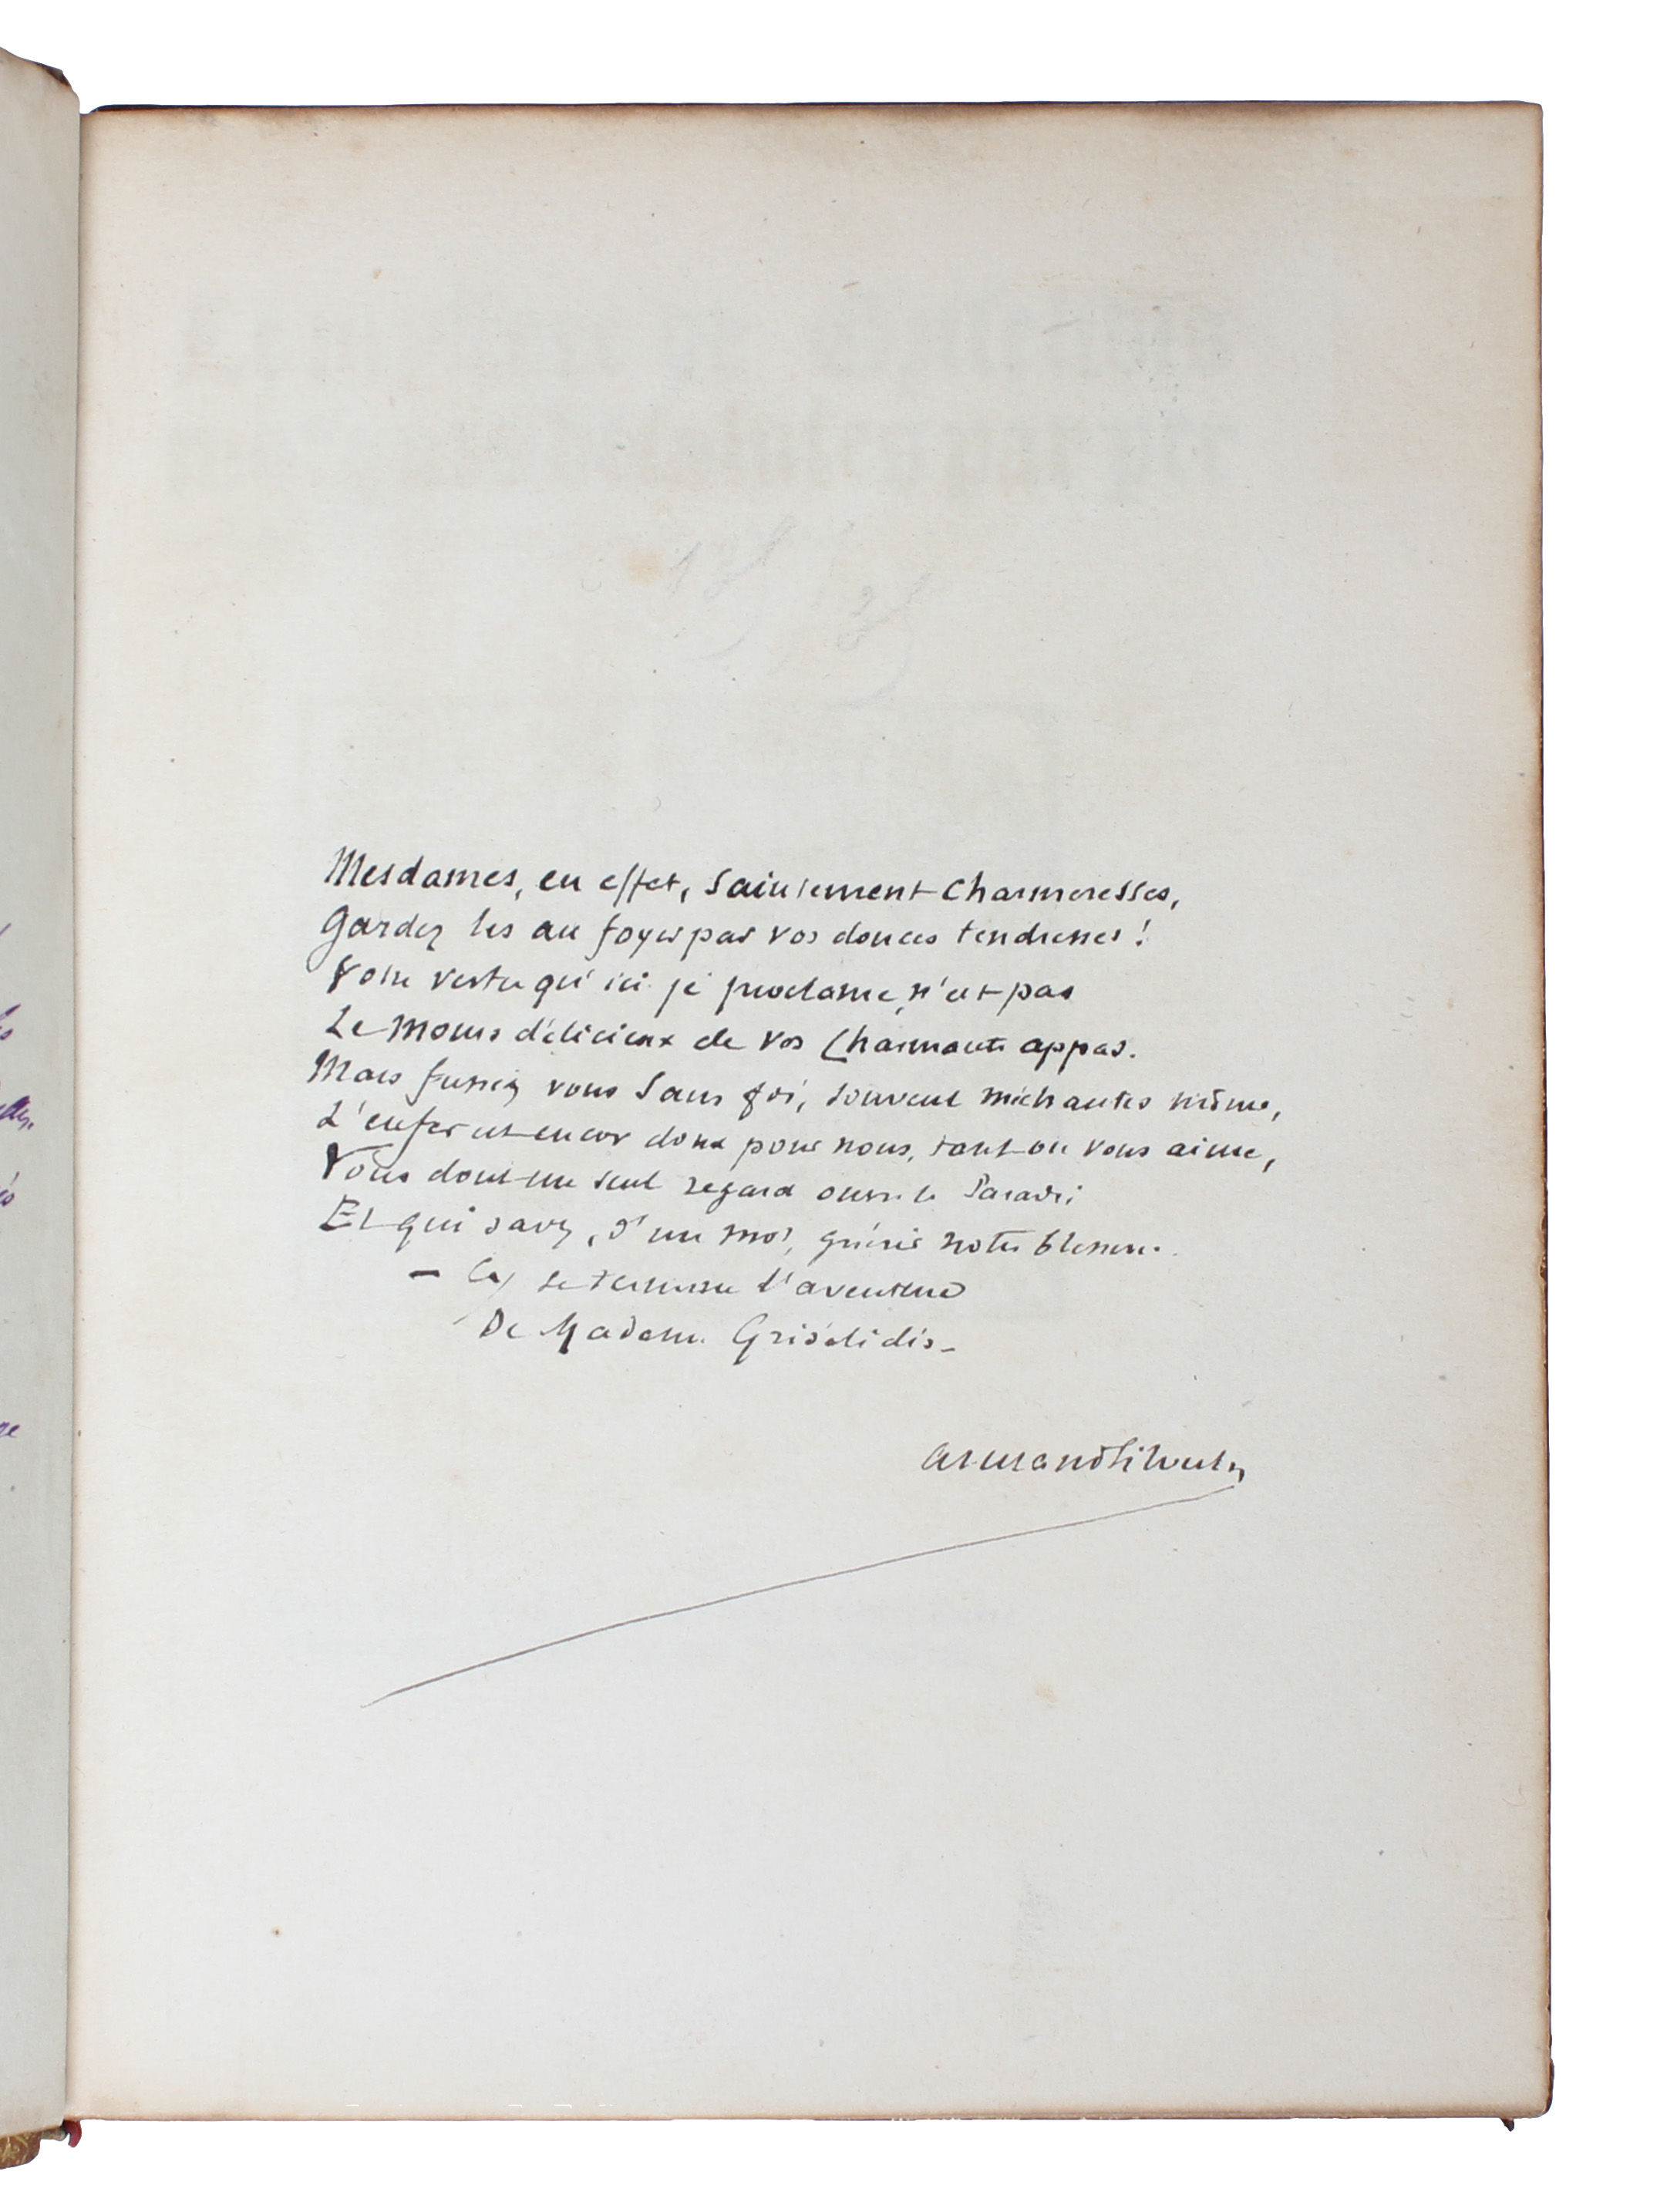 Mesdames, en effet, Saintement Charmeresses,
Gardez les au foyer par vos douces tendresses !
Votre vertu qu'ici je proclame, n'est pas
Le Moins délicieux de vos Charmants appas.
Mais fussiez vous Sans foi, souvent méchantes même,
L'enfer est encor doux pour nous, tant on vous aime,
Vous dont un seul regard ouvre le Paradis
Et qui savez, d'un mot, guérir notre blessure.
— Ci se termine l'aventure
De Madame Grisélidis -
Armand Silvestre